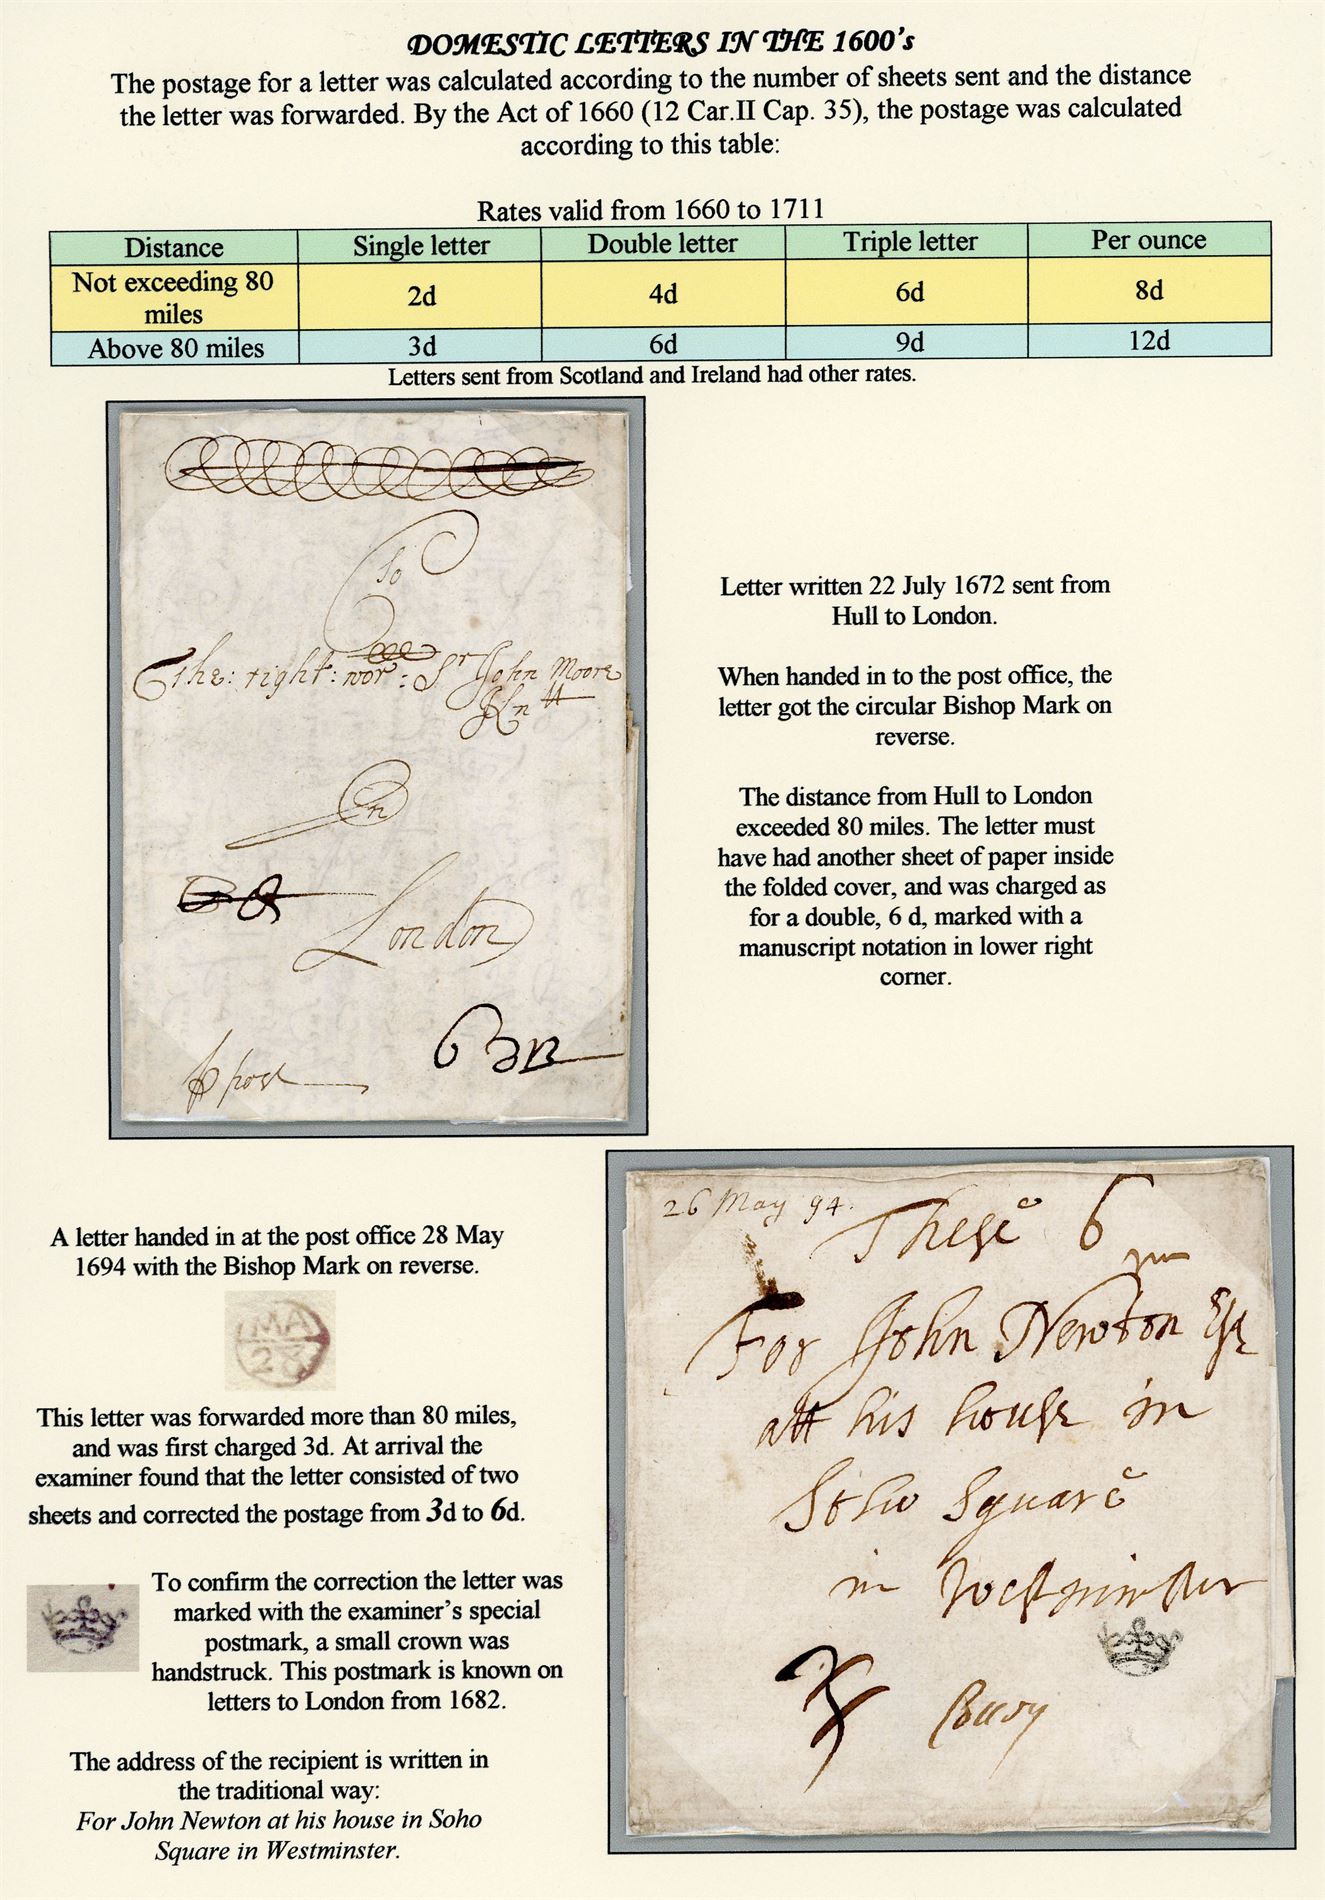 DOMESTIC LETTERS IN THE 1600's
The postage for a letter was calculated according to the number of sheets sent and the distance
the letter was forwarded. By the Act of 1660 (12 Car.II Cap. 35), the postage was calculated
according to this table:
Rates valid from 1660 to 1711
Distance Single letter Double letter Triple letter Per ounce
Not exceeding 80
miles 2d 4d 6d 8d
Above 80 miles 3d 6d 9d 12d
Letters sent from Scotland and Ireland had other rates.
To
The: right: wor: Sr John Moore
Kntt
In
London
post
6
Letter written 22 July 1672 sent from
Hull to London.
When handed in to the post office, the
letter got the circular Bishop Mark on
reverse.
The distance from Hull to London
exceeded 80 miles. The letter must
have had another sheet of paper inside
the folded cover, and was charged as
for a double, 6 d, marked with a
manuscript notation in lower right
corner.
A letter handed in at the post office 28 May
1694 with the Bishop Mark on reverse.
MA
28
This letter was forwarded more than 80 miles,
and was first charged 3d. At arrival the
examiner found that the letter consisted of two
sheets and corrected the postage from 3d to 6d.
To confirm the correction the letter was
marked with the examiner's special
postmark, a small crown was
handstruck. This postmark is known on
letters to London from 1682.
The address of the recipient is written in
the traditional way:
For John Newton at his house in Soho
Square in Westminster.
26 May 94.
These 6
For John Newton Esq
att his house in
Soho Square
in Westminster
3